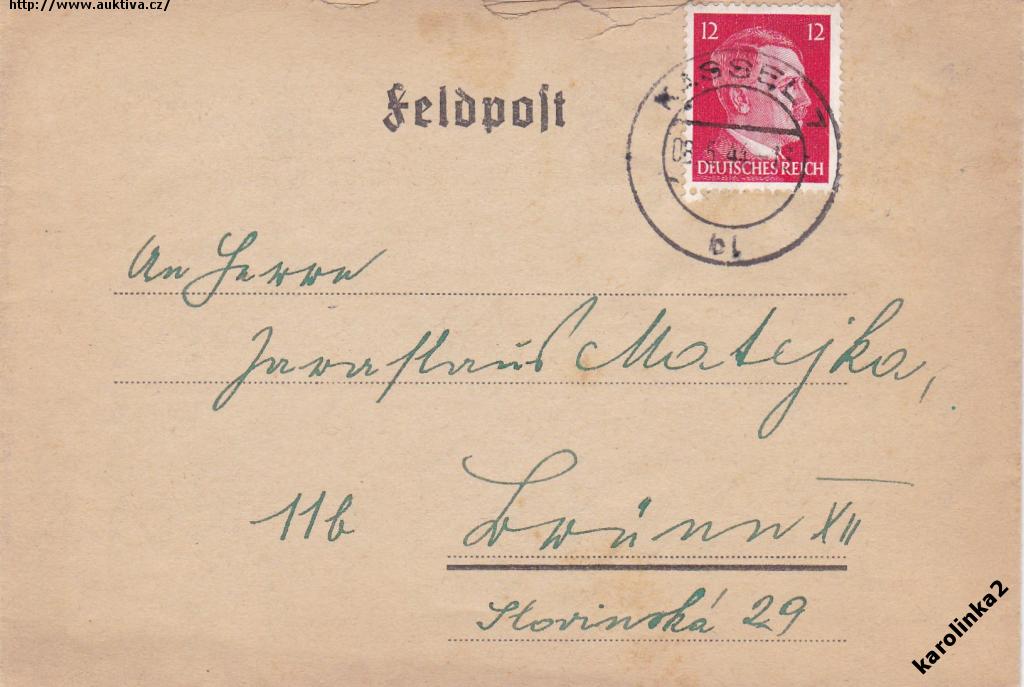 http://www.auktiva.cz/
12 12
Feldpost
KASSEL 7
DEUTSCHES REICH
An Herrn
Jaroslaus Matejka,
11b Brünn XII
Slovinská 29
karolinka2